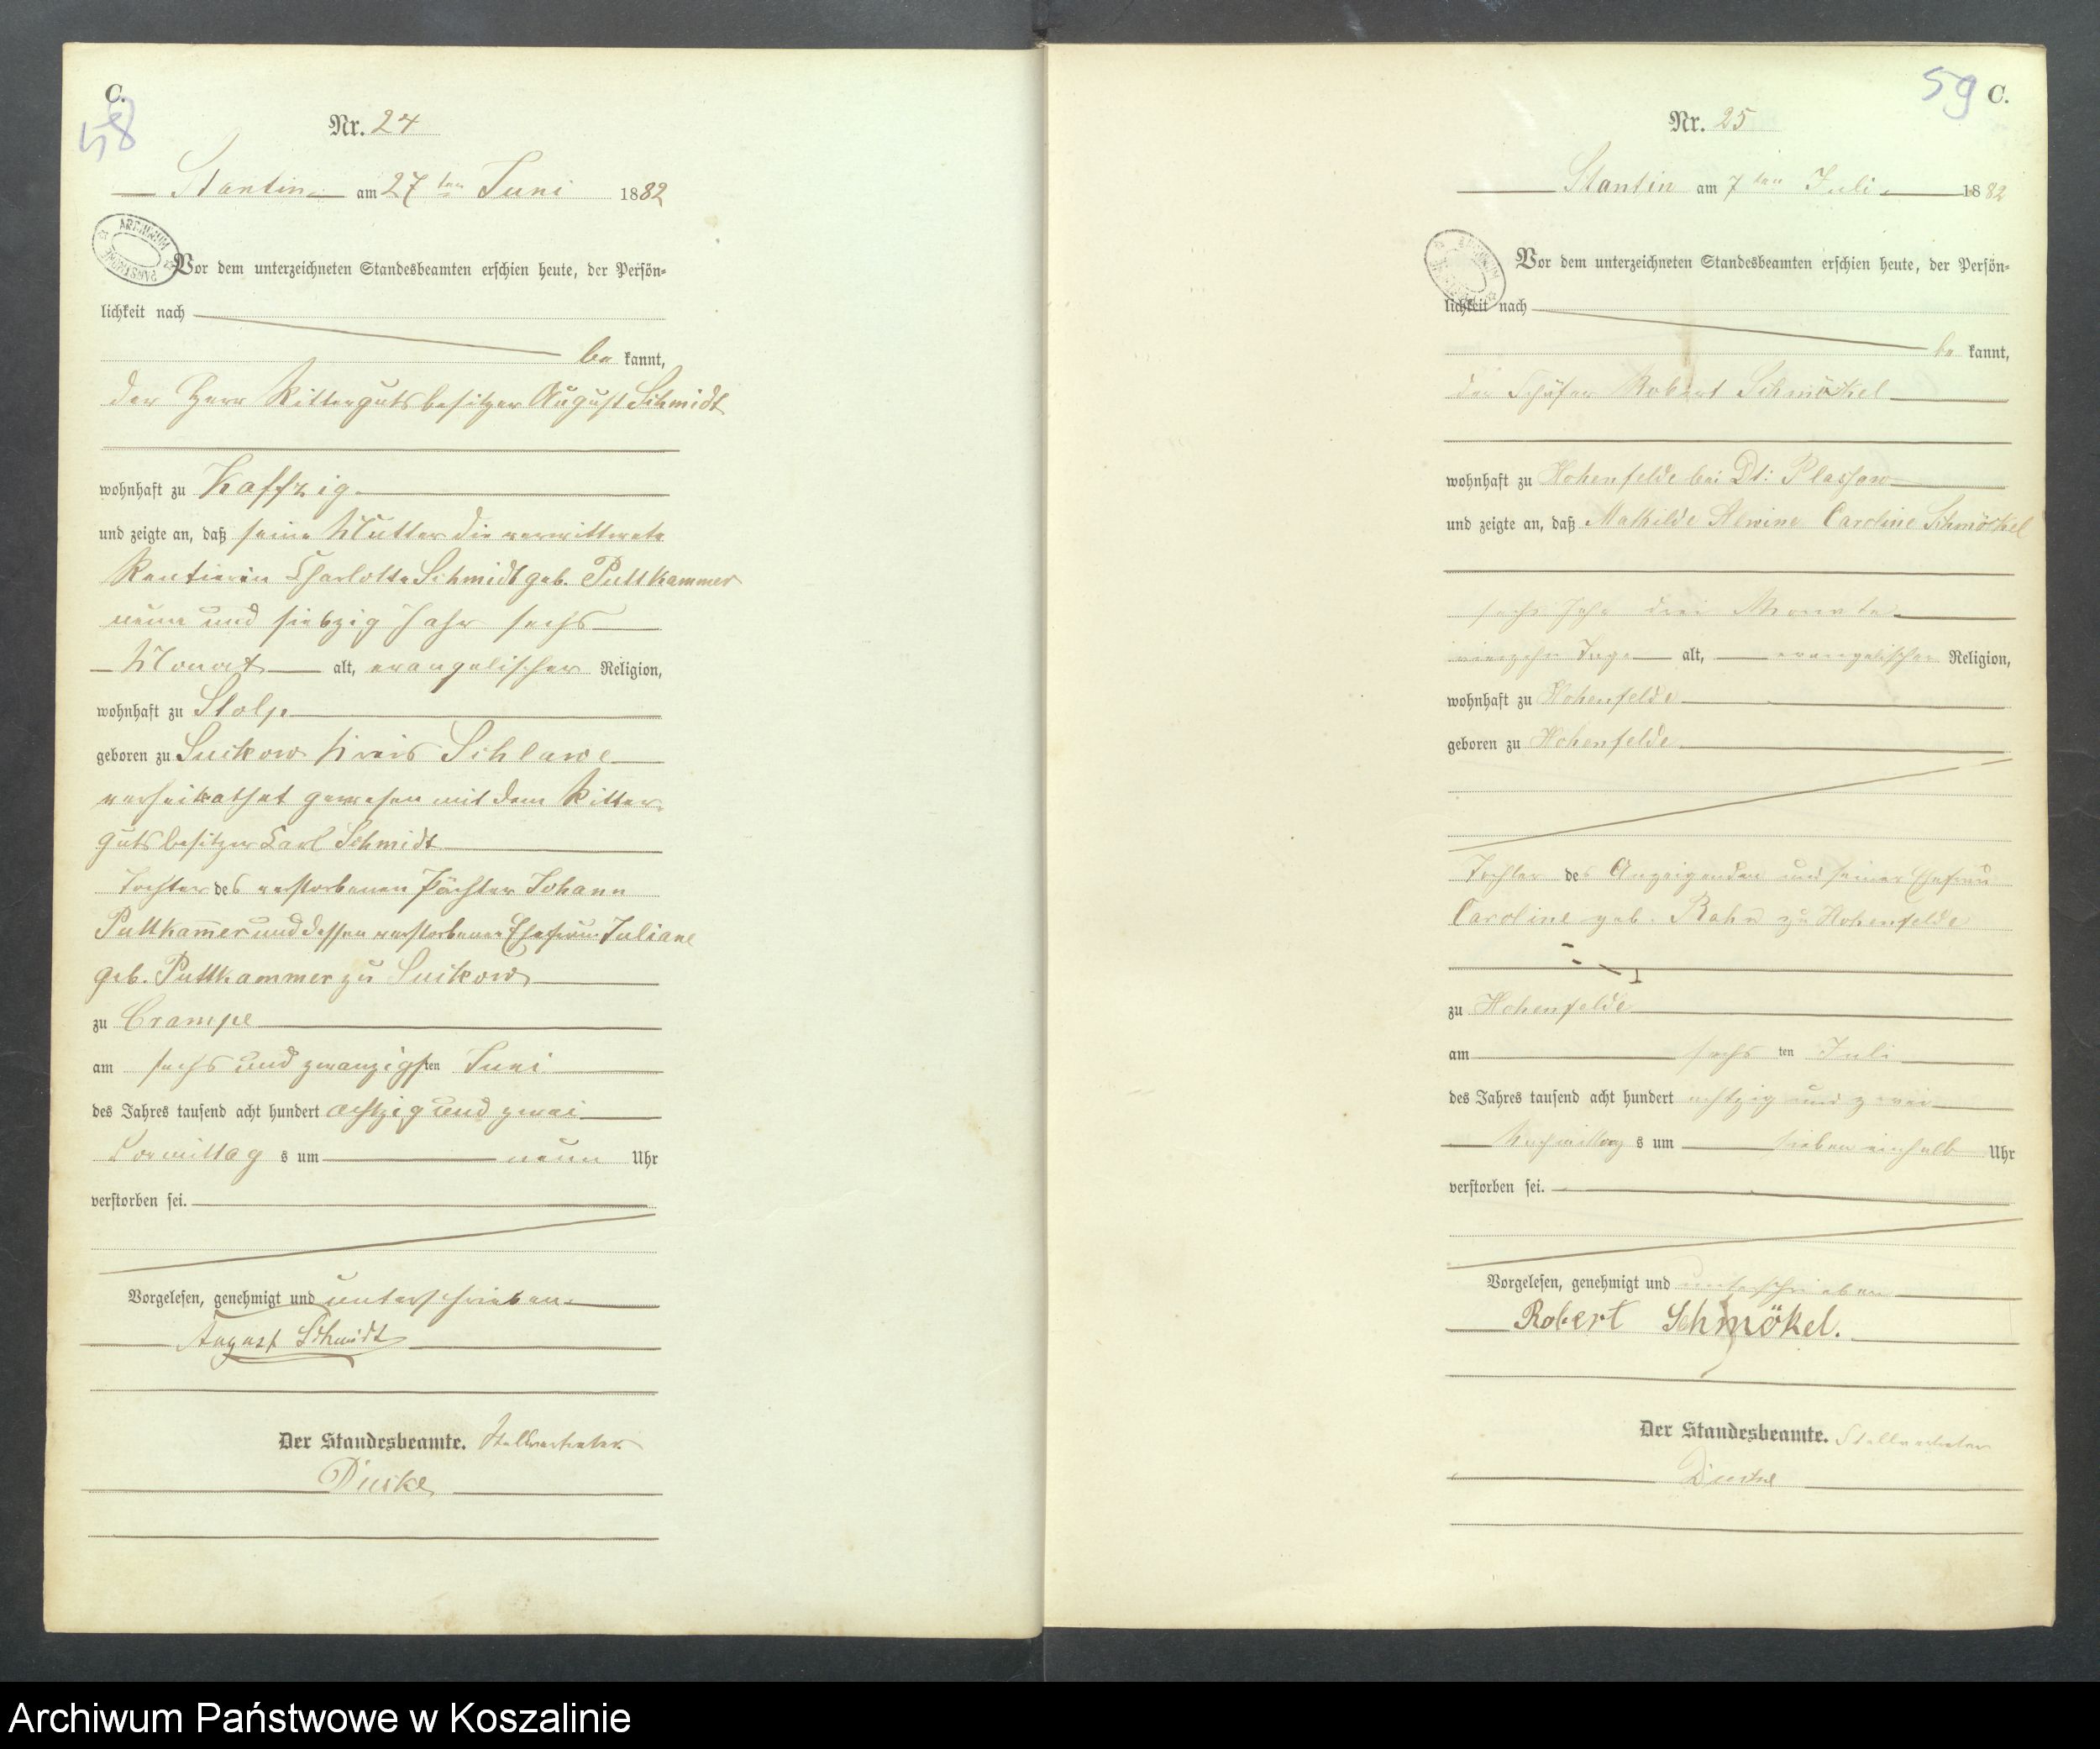 C.
58
Nr. 24
Stantin am 27ten Juni 1882
ARCHIWUM PAŃSTWOWE
Vor dem unterzeichneten Standesbeamten erschien heute, der Persön-
lichkeit nach
be kannt,
der Herr Rittergutsbesitzer August Schmidt
wohnhaft zu Kaffzig
und zeigte an, daß seine Mutter die verwittwete
Rentierin Charlotte Schmidt geb. Puttkammer
neun und siebzig Jahr sechs
Monat alt, evangelischer Religion,
wohnhaft zu Stolp
geboren zu Suckow Kreis Schlawe
verheirathet gewesen mit dem Ritter-
gutsbesitzer Carl Schmidt
Tochter des verstorbenen Pächter Johann
Puttkam̄er und dessen verstorbener Ehefrau Juliane
geb. Puttkammer zu Suckow
zu Crampe
am sechs und zwanzigsten Juni
des Jahres tausend acht hundert achtzig und zwei
Vormittag s um neun Uhr
verstorben sei.
Vorgelesen, genehmigt und unterschrieben
August Schmidt
Der Standesbeamte. Stellvertreter
59 C.
Nr. 25
Stantin am 7ten Juli 1882
Vor dem unterzeichneten Standesbeamten erschien heute, der Persön-
lichkeit nach
be kannt,
der Schäfer Robert Schmökel
wohnhaft zu Hohenfelde bei Dt: Plassow
und zeigte an, daß Mathilde Alwine Caroline Schmökel
sechs Jahr drei Monate
vierzehn Tage alt, evangelischer Religion,
wohnhaft zu Hohenfelde
geboren zu Hohenfelde
Tochter des Anzeigenden und seiner Ehefrau
Caroline geb. Rahn zu Hohenfelde
zu Hohenfelde
am sechs ten Juli
des Jahres tausend acht hundert achtzig und zwei
Nachmittag s um sieben einhalb Uhr
verstorben sei.
Vorgelesen, genehmigt und unterschrieben
Robert Schmökel.
Der Standesbeamte. Stellvertreter
Archiwum Państwowe w Koszalinie